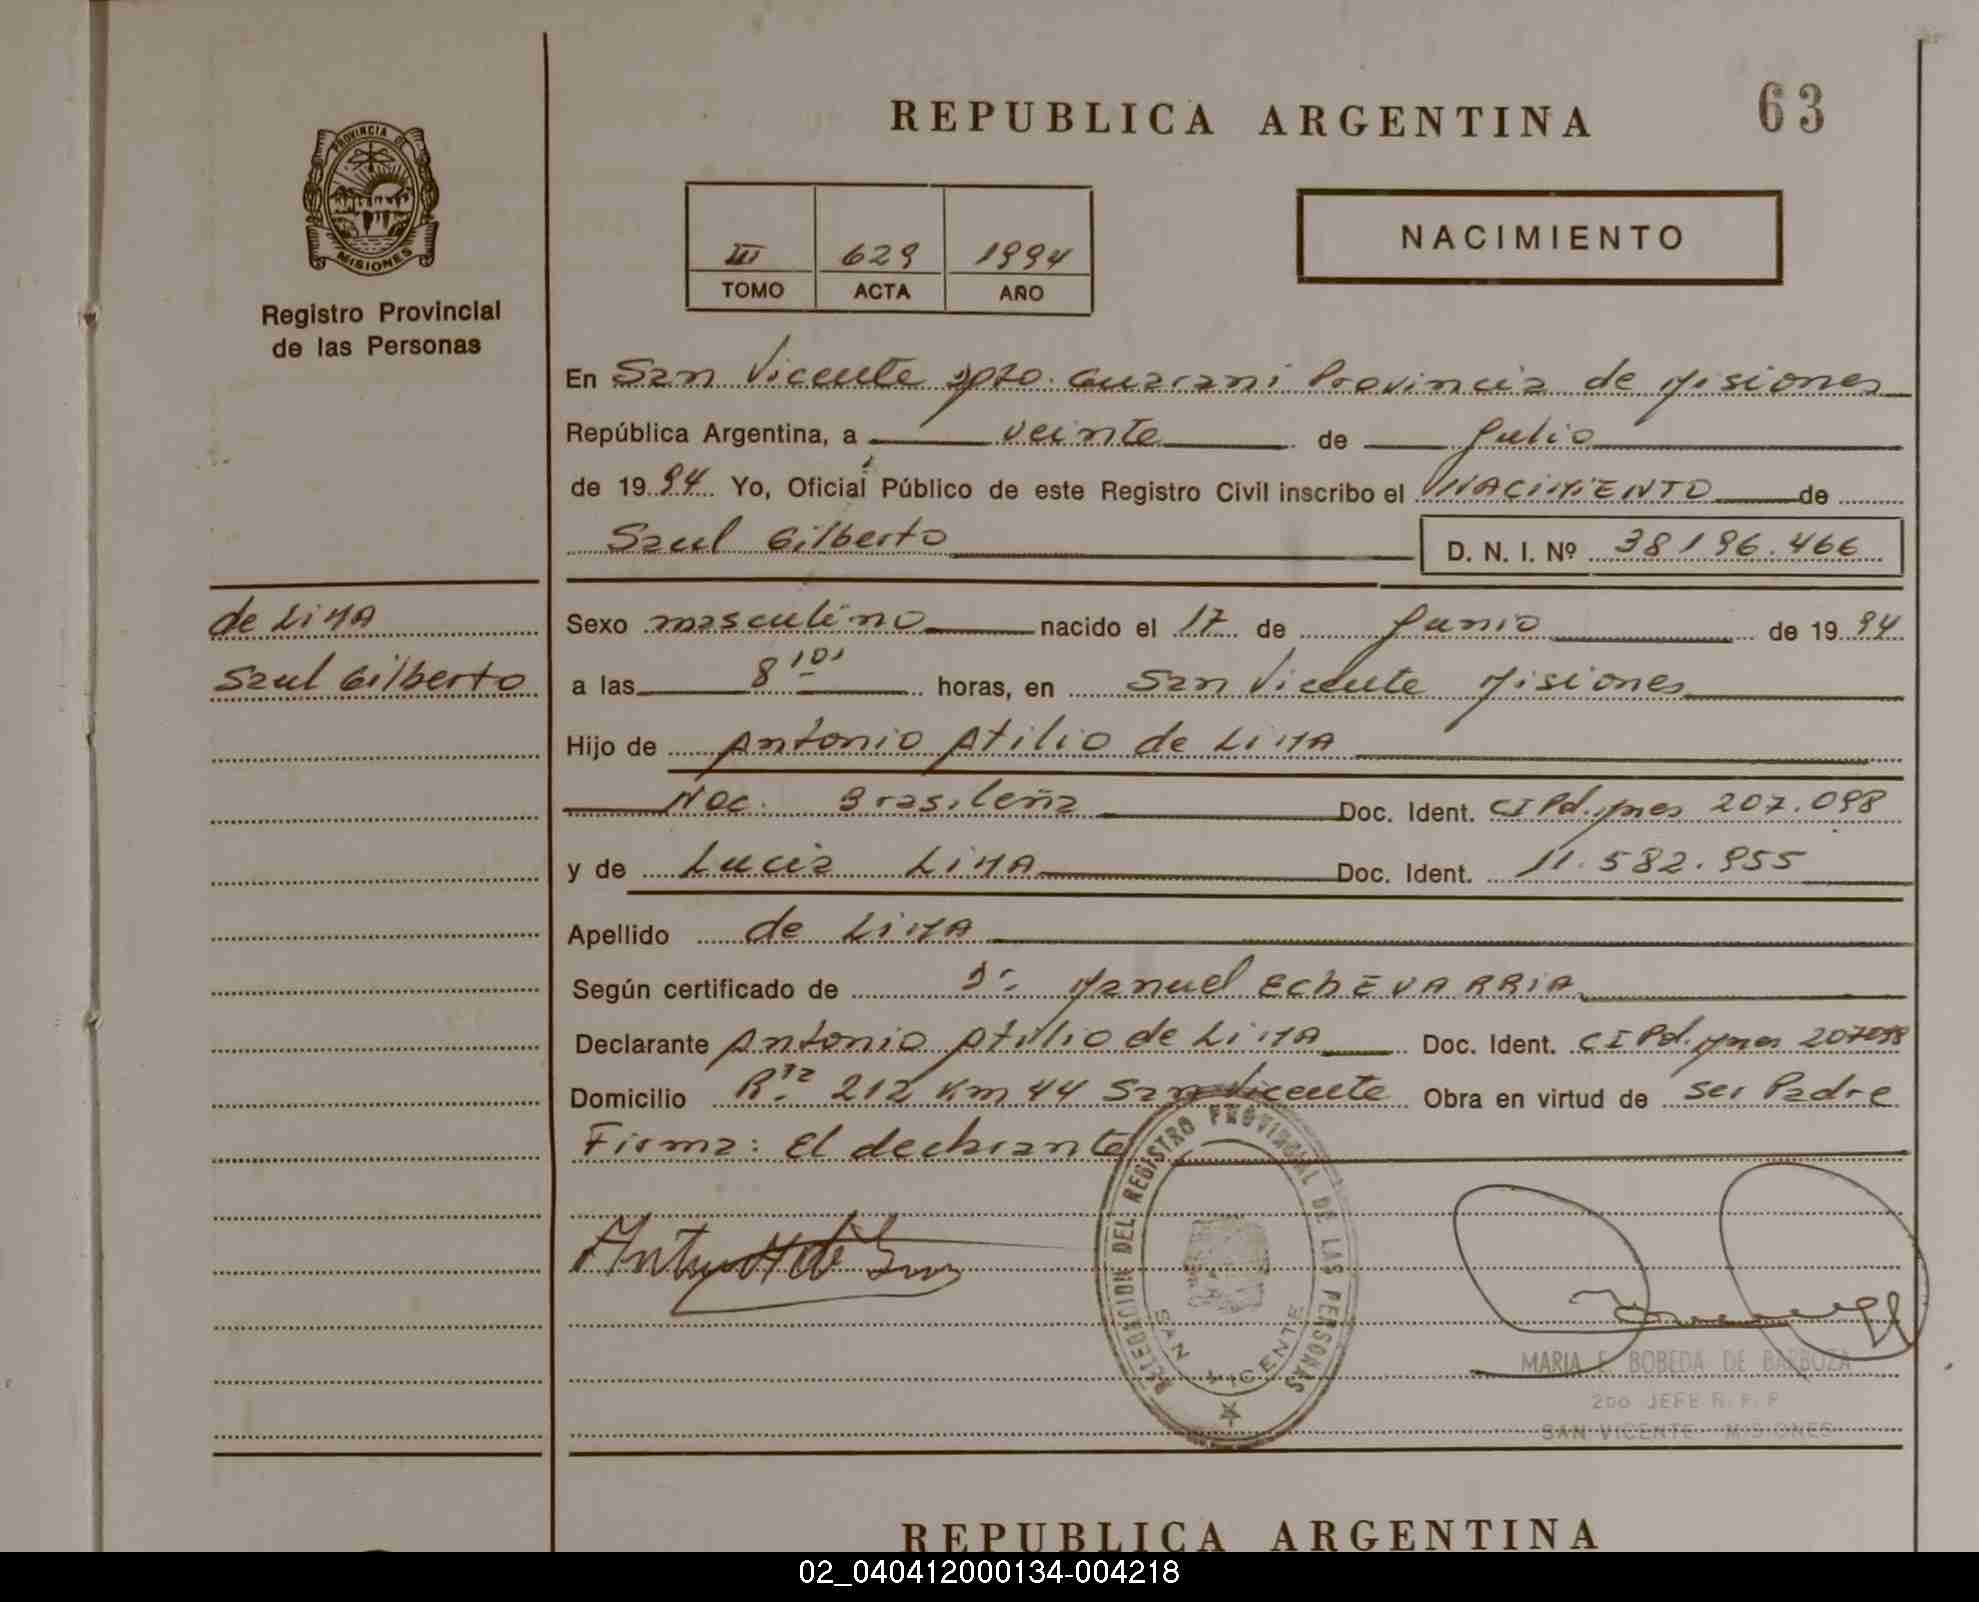 REPUBLICA ARGENTINA
63
PROVINCIA DE
MISIONES
Registro Provincial
de las Personas
III 629 1994
TOMO ACTA AÑO
NACIMIENTO
En San Vicente Dpto. Guarani Provincia de Misiones
República Argentina, a veinte de Julio
de 1994 Yo, Oficial Público de este Registro Civil inscribo el NACIMIENTO de
Saul Gilberto D. N. I. Nº 38196.466
de LIMA
Saul Gilberto
Sexo masculino nacido el 17 de Junio de 1994
a las 8'10' horas, en San Vicente Misiones
Hijo de Antonio Atilio de LIMA
Nac. Brasileña Doc. Ident. CI Pol. Mnes 207.098
y de Lucia LIMA Doc. Ident. 11.582.955
Apellido de LIMA
Según certificado de Dr. Manuel EChEVARRIA
Declarante Antonio Atilio de LIMA Doc. Ident. CI Pol. Mnes 207098
Domicilio Rta 212 Km 44 San Vicente Obra en virtud de ser Padre
Firma: El declarante
DELEGACION DEL REGISTRO PROVINCIAL DE LAS PERSONAS
SAN VICENTE
MARIA E. BOBEDA DE BARBOZA
2do JEFE R. P. P.
SAN VICENTE MISIONES
REPUBLICA ARGENTINA
02_040412000134-004218